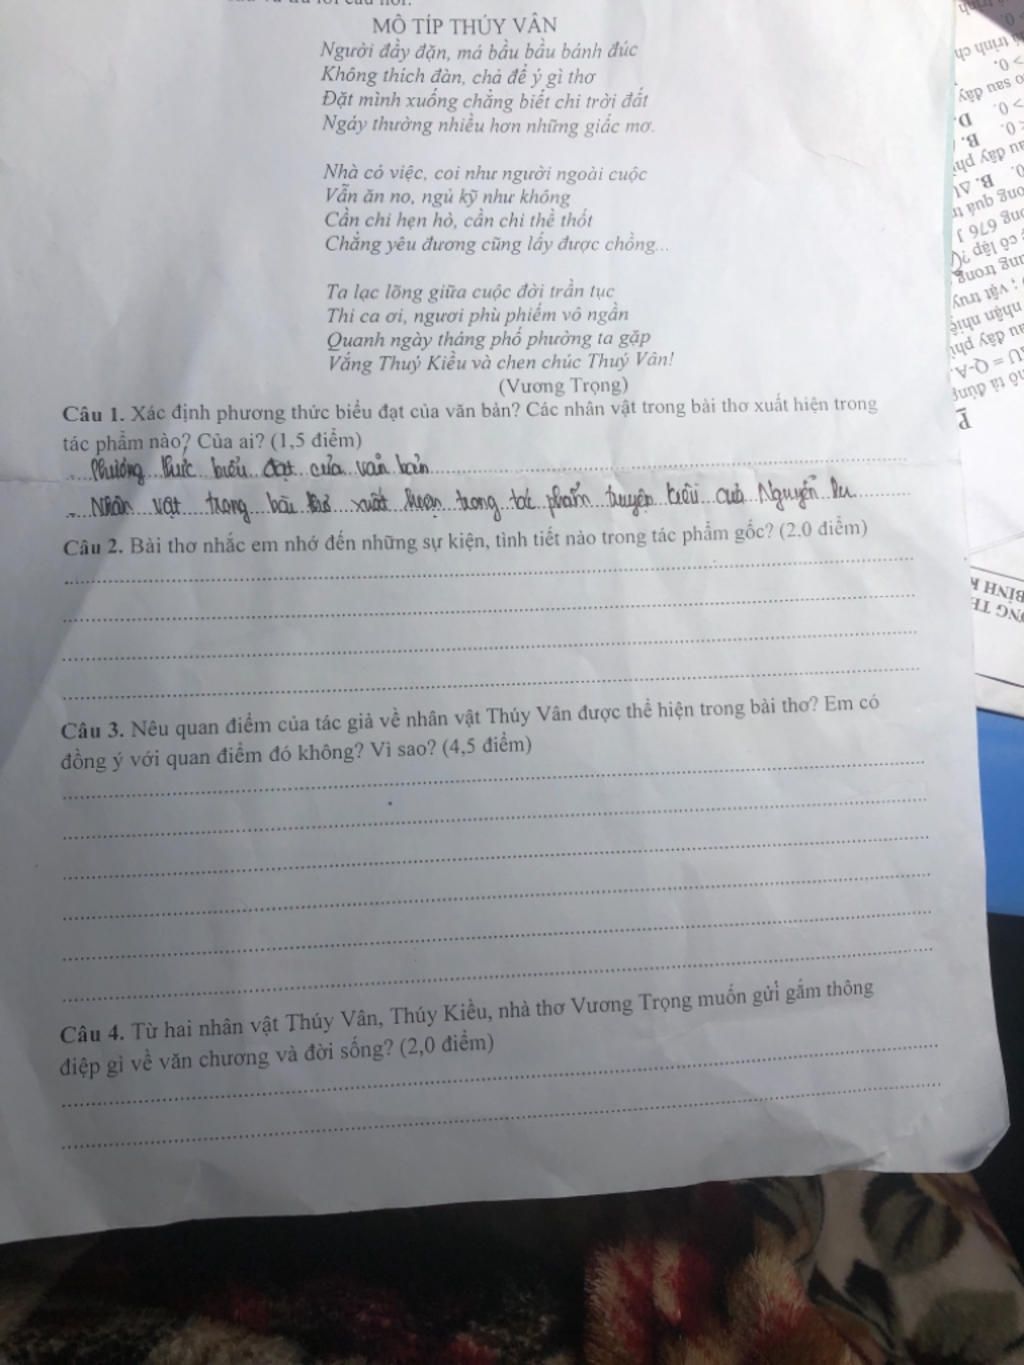 MÔ TÍP THÚY VÂN
Người đầy đặn, má bầu bầu bánh đúc
Không thích đàn, chả để ý gì thơ
Đặt mình xuống chẳng biết chi trời đất
Ngáy thường nhiều hơn những giấc mơ.
Nhà có việc, coi như người ngoài cuộc
Vẫn ăn no, ngủ kỹ như không
Cần chi hẹn hò, cần chi thề thốt
Chẳng yêu đương cũng lấy được chồng...
Ta lạc lõng giữa cuộc đời trần tục
Thi ca ơi, ngươi phù phiếm vô ngần
Quanh ngày tháng phố phường ta gặp
Vắng Thuý Kiều và chen chúc Thuý Vân!
(Vương Trọng)
Câu 1. Xác định phương thức biểu đạt của văn bản? Các nhân vật trong bài thơ xuất hiện trong
tác phẩm nào? Của ai? (1,5 điểm)
Phương thức biểu đạt của văn bản
Nhân vật trong bài thơ xuất hiện trong tác phẩm truyện kiều của Nguyễn Du
Câu 2. Bài thơ nhắc em nhớ đến những sự kiện, tình tiết nào trong tác phẩm gốc? (2,0 điểm)
Câu 3. Nêu quan điểm của tác giả về nhân vật Thúy Vân được thể hiện trong bài thơ? Em có
đồng ý với quan điểm đó không? Vì sao? (4,5 điểm)
Câu 4. Từ hai nhân vật Thúy Vân, Thúy Kiều, nhà thơ Vương Trọng muốn gửi gắm thông
điệp gì về văn chương và đời sống? (2,0 điểm)